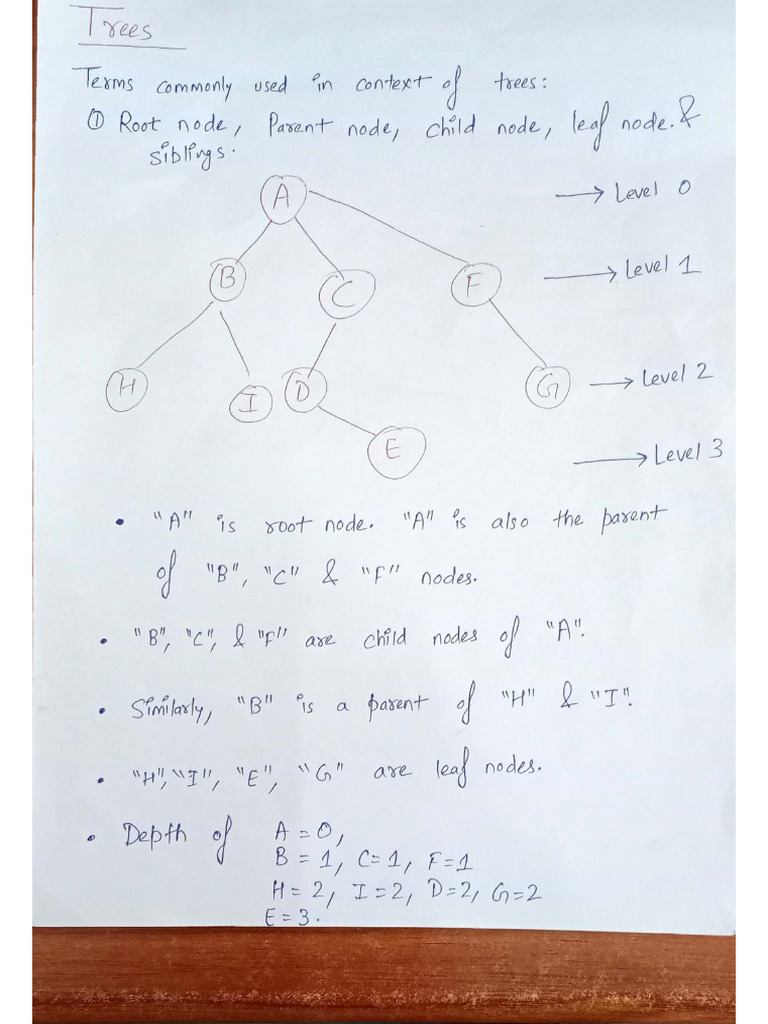 Trees
Terms commonly used in context of trees:
① Root node, Parent node, child node, leaf node. &
siblings.
A → Level 0
B C F → Level 1
H I D G → Level 2
E → Level 3
• "A" is root node. "A" is also the parent
of "B", "C" & "F" nodes.
• "B", "C", & "F" are child nodes of "A".
• Similarly, "B" is a parent of "H" & "I".
• "H", "I", "E", "G" are leaf nodes.
• Depth of A = 0,
B = 1, C = 1, F = 1
H = 2, I = 2, D = 2, G = 2
E = 3.